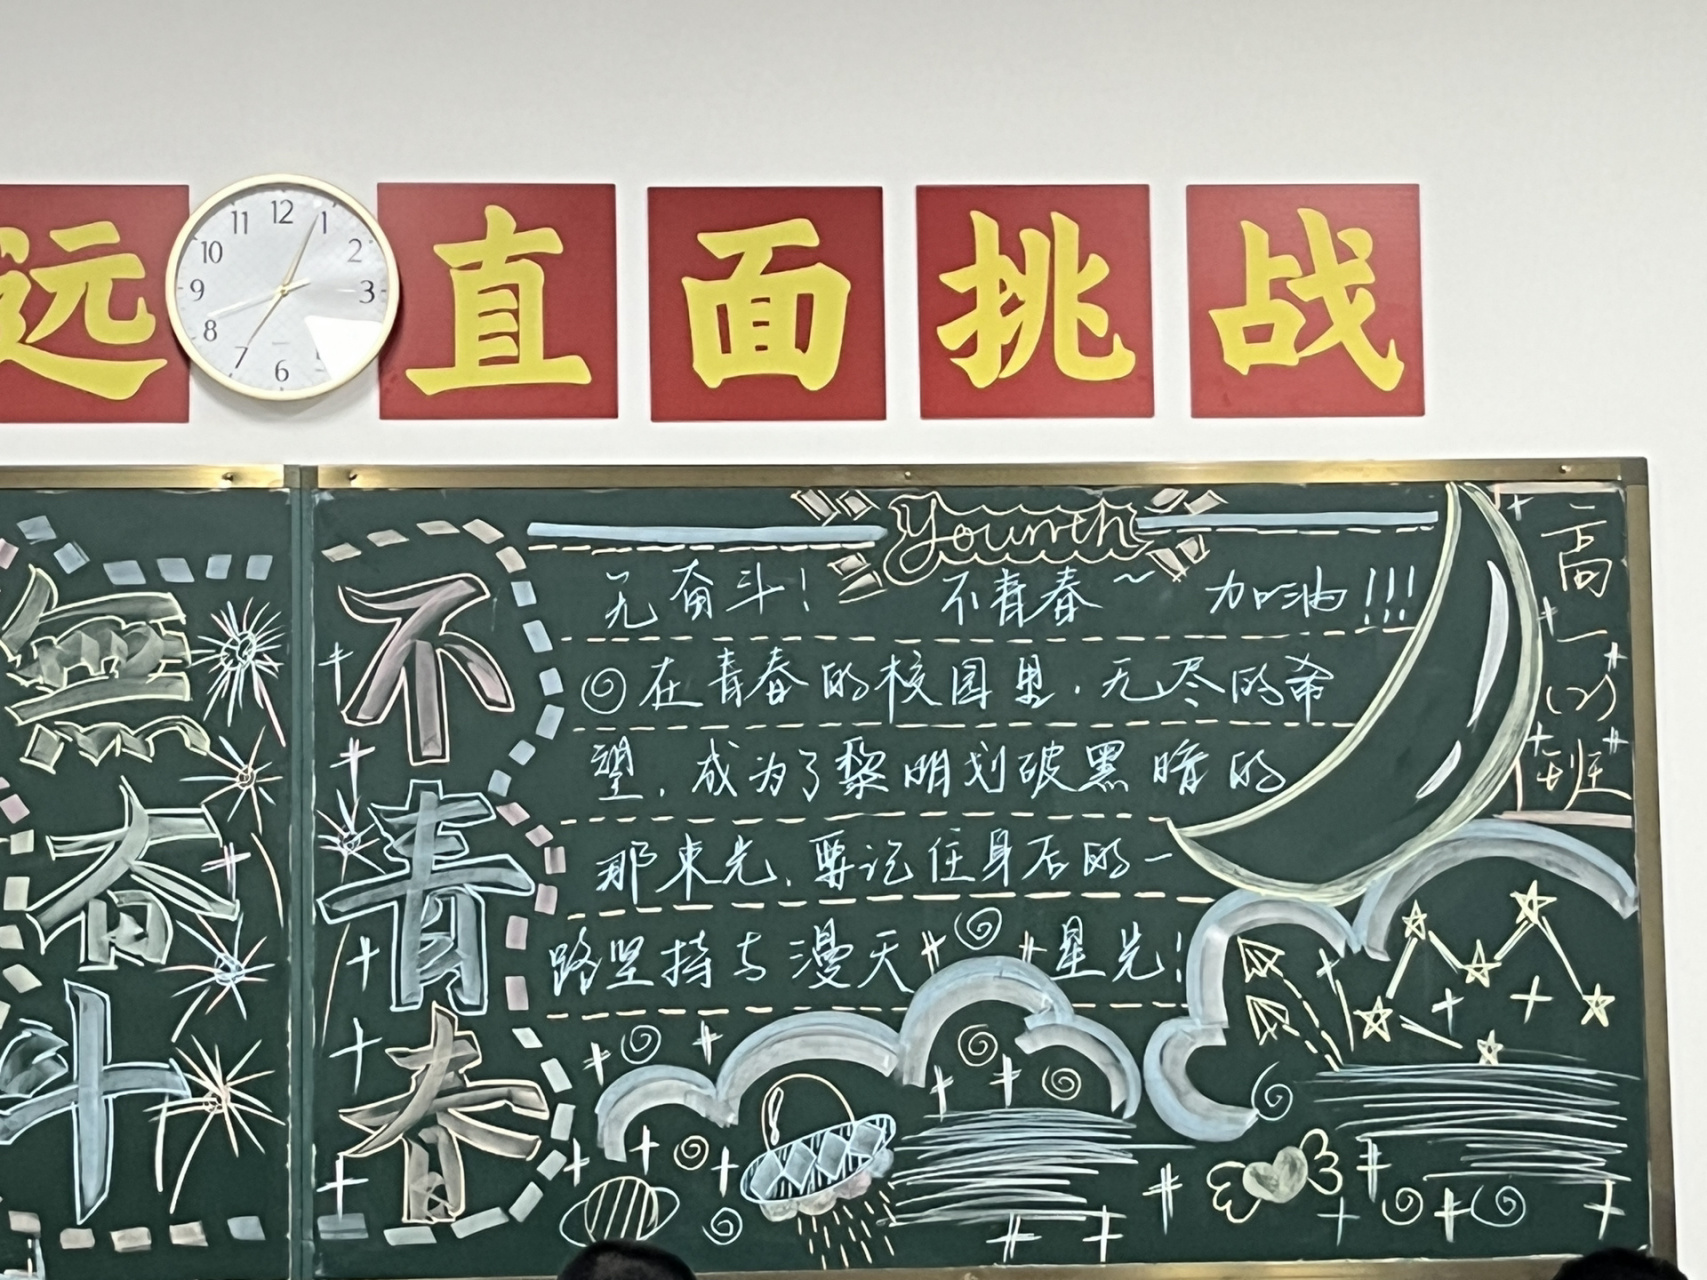 远 直面挑战
12
1
2
3
6
7
8
9
10
11
無奋斗
不青春
Yourth
无奋斗! 不青春~ 加油!!!
在青春的校园里,无尽的希
望,成为了黎明划破黑暗的
那束光,要记住身后的一
路坚持与漫天星光!
高一(2)班